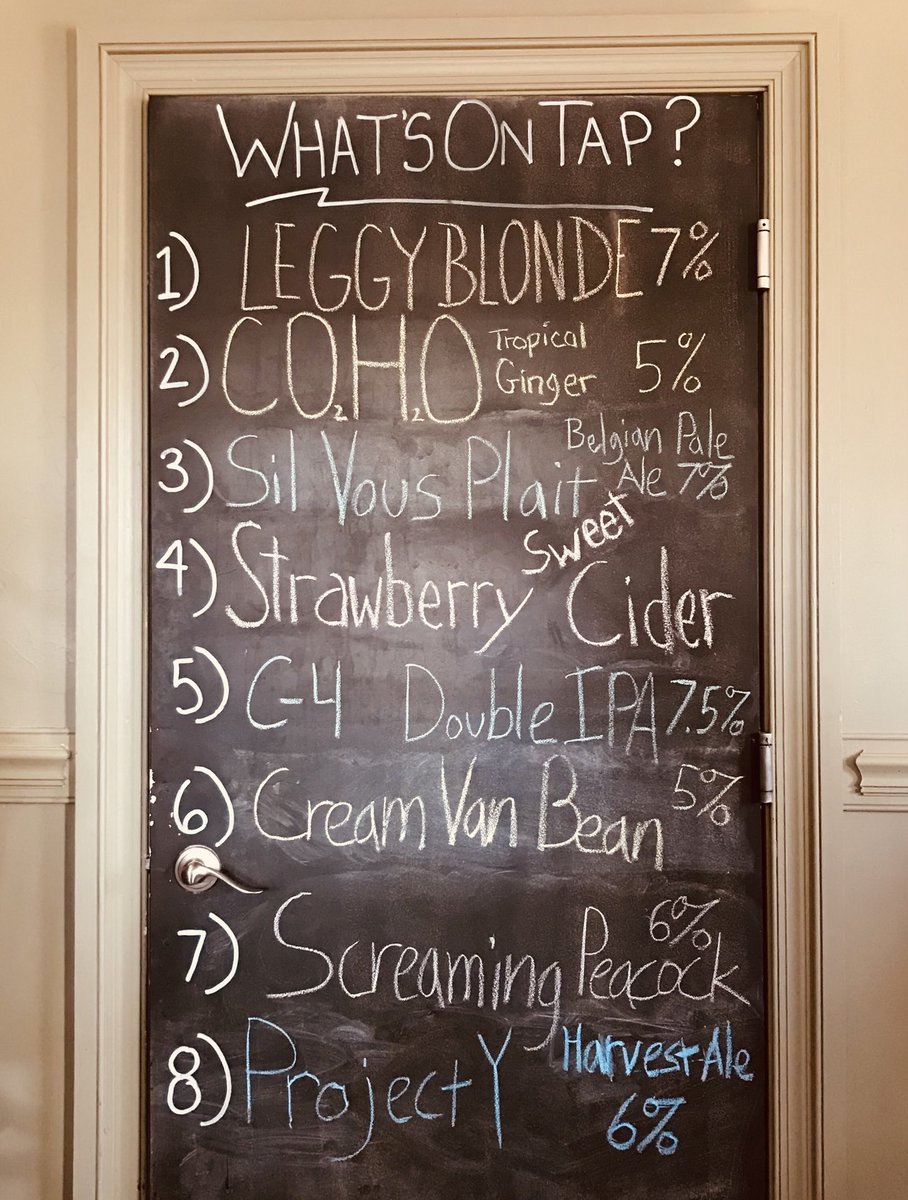 WHAT'S ON TAP?
1) LEGGY BLONDE 7%
2) CO₂H₂O Tropical Ginger 5%
3) Sil Vous Plait Belgian Pale Ale 7%
4) Strawberry Sweet Cider
5) C-4 Double IPA 7.5%
6) Cream Van Bean 5%
7) Screaming Peacock 6%
8) Project Y Harvest Ale 6%